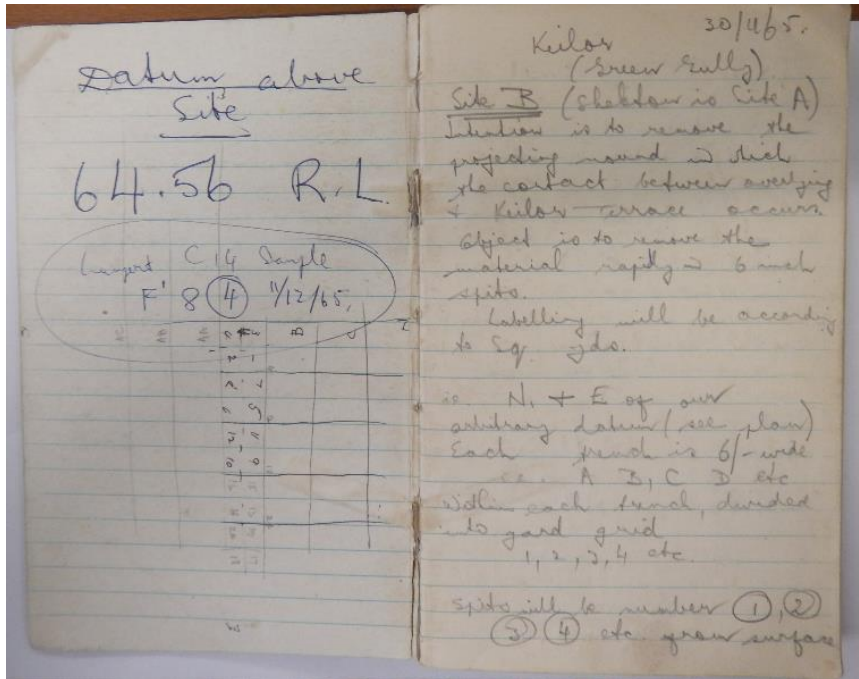 Datum above
Site
64.56 R.L.
C14 Sample
F' 8 ④ 11/12/65.
B
C
30/11/65.
Keilor
(Green Gully)
Site B (Skeleton is Site A)
Intention is to remove the
projecting mound in which
the contact between overlying
& Keilor terrace occurs.
Object is to remove the
material rapidly in 6 inch
spits.
Labelling will be according
to Sq. yds.
ie. N. + E of our
arbitrary datum (see plan)
Each trench is 6/- wide
i.e. A B, C D etc
Within each trench, divided
into yard grid
1, 2, 3, 4 etc.
Spits will be number ①, ②
③ ④ etc from surface